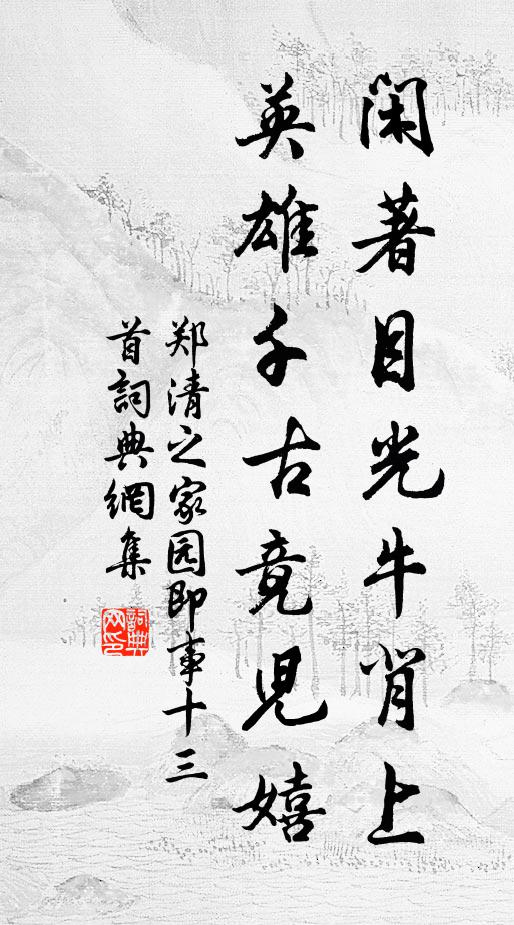 闲著目光牛背上
英雄千古竟兒嬉
郑清之家园即事十三
首詞典網集
詞典
网印